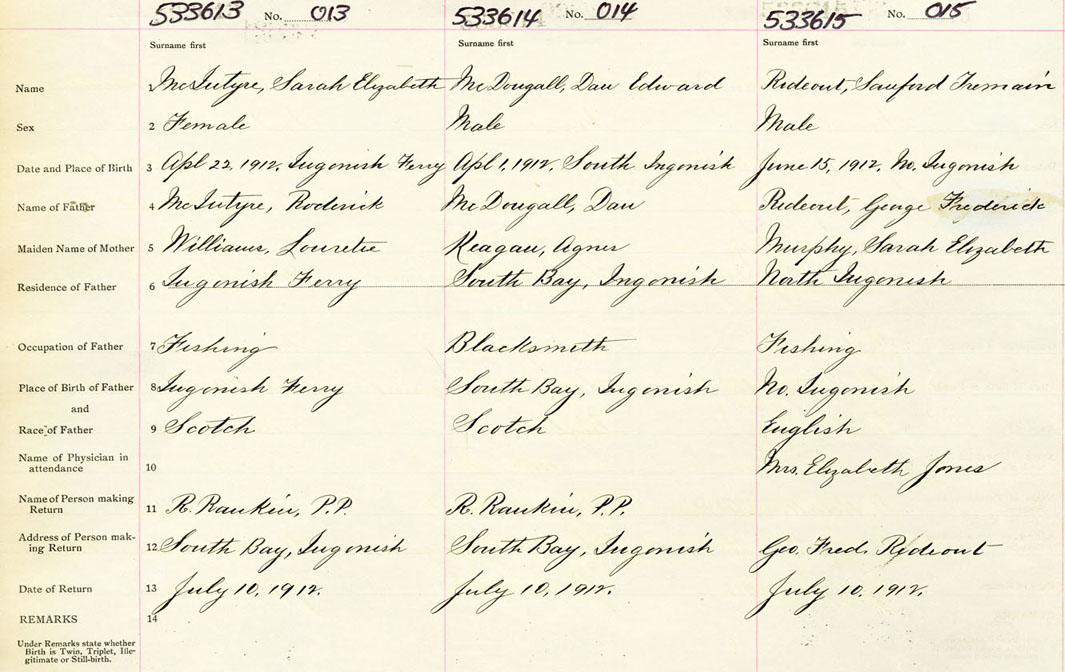 533613 No. 013 533614 No. 014 533615 No. 015
Surname first Surname first Surname first
Name 1 McIntyre, Sarah Elizabeth McDougall, Dan Edward Rideout, Sanford Tremain
Sex 2 Female Male Male
Date and Place of Birth 3 Apl 22, 1912, Ingonish Ferry Apl 1, 1912, South Ingonish June 15, 1912, No. Ingonish
Name of Father 4 McIntyre, Roderick McDougall, Dan Rideout, George Frederick
Maiden Name of Mother 5 Williams, Louretie Keagan, Agnes Murphy, Sarah Elizabeth
Residence of Father 6 Ingonish Ferry South Bay, Ingonish North Ingonish
Occupation of Father 7 Fishing Blacksmith Fishing
Place of Birth of Father 8 Ingonish Ferry South Bay, Ingonish No. Ingonish
and
Race of Father 9 Scotch Scotch English
Name of Physician in
attendance 10 Mrs. Elizabeth Jones
Name of Person making
Return 11 R. Rankin, P.P. R. Rankin, P.P.
Address of Person mak-
ing Return 12 South Bay, Ingonish South Bay, Ingonish Geo. Fred. Rideout
Date of Return 13 July 10, 1912. July 10, 1912. July 10, 1912.
REMARKS 14
Under Remarks state whether
Birth is Twin, Triplet, Ille-
gitimate or Still-birth.